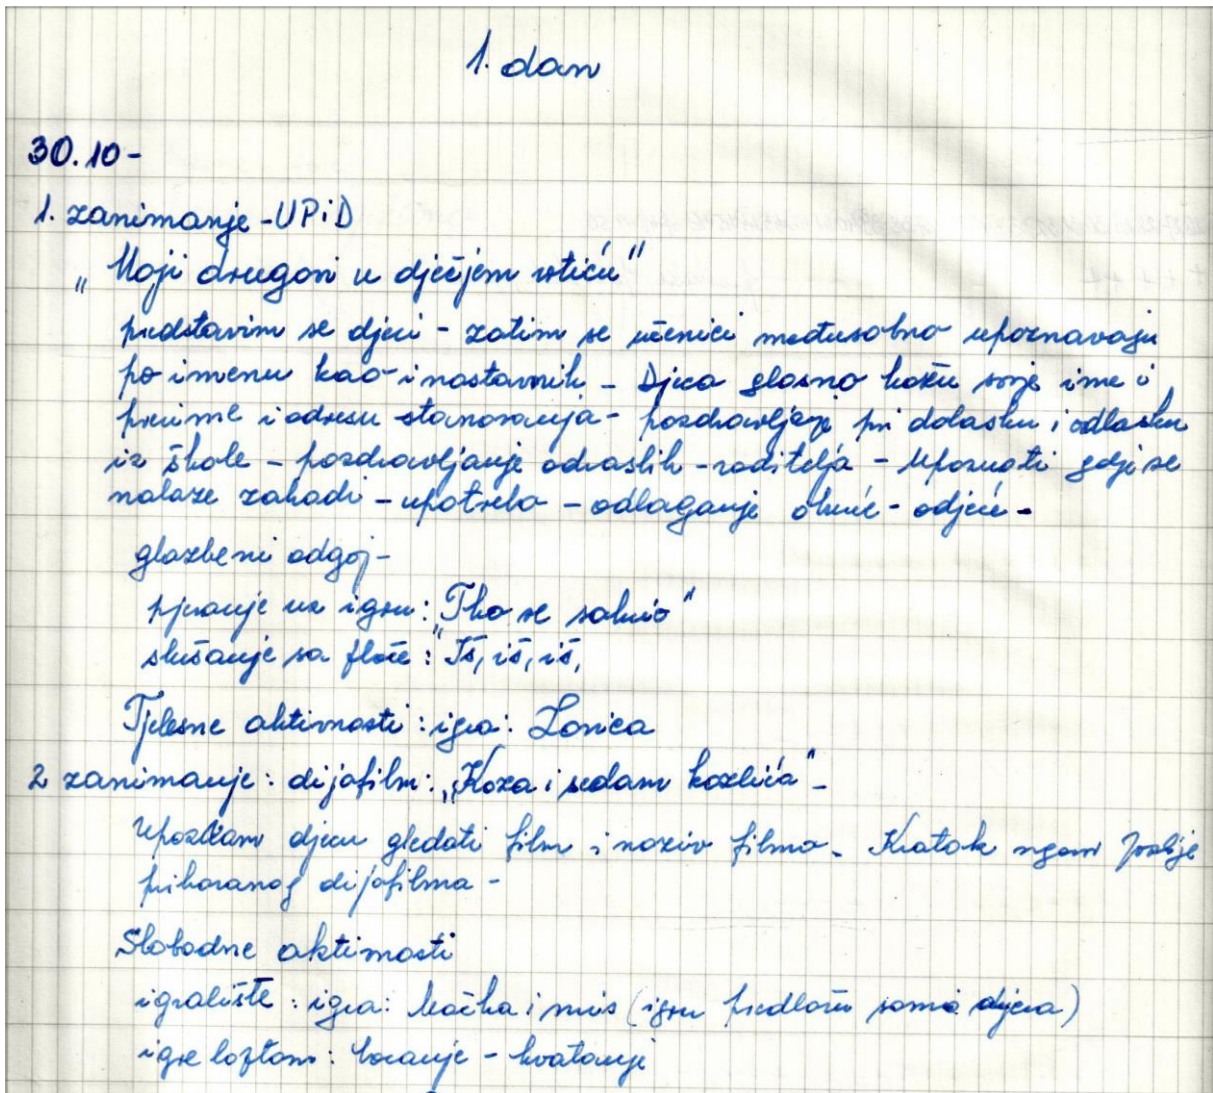 1. dan
30.10-
1. zanimanje - UPiD
„Moji drugovi u dječjem vrtiću"
predstavim se djeci - zatim se učenici međusobno upoznavaju
po imenu kao i nastavnik - Djeca glasno kažu svoje ime i
prezime i adresu stanovanja - pozdravljanje pri dolasku i odlasku
iz škole - pozdravljanje odraslih - roditelja - upoznati gdje se
nalaze zahodi - upotreba - odlaganje obuće - odjeće -
glazbeni odgoj -
pjevanje uz igru: „Tko se sakrio"
slušanje sa ploče: „Iš, iš, iš,
Tjelesne aktivnosti: igra: Lovica
2 zanimanje: dijafilm: „Koza i sedam kozlića" -
djecu gledati film i naziv filma - Kratak poslije
prikazanog dijafilma -
Slobodne aktivnosti
igralište: igra: Mačka i miš (igru predlažu sama djeca)
igre loptom: bacanje - hvatanje